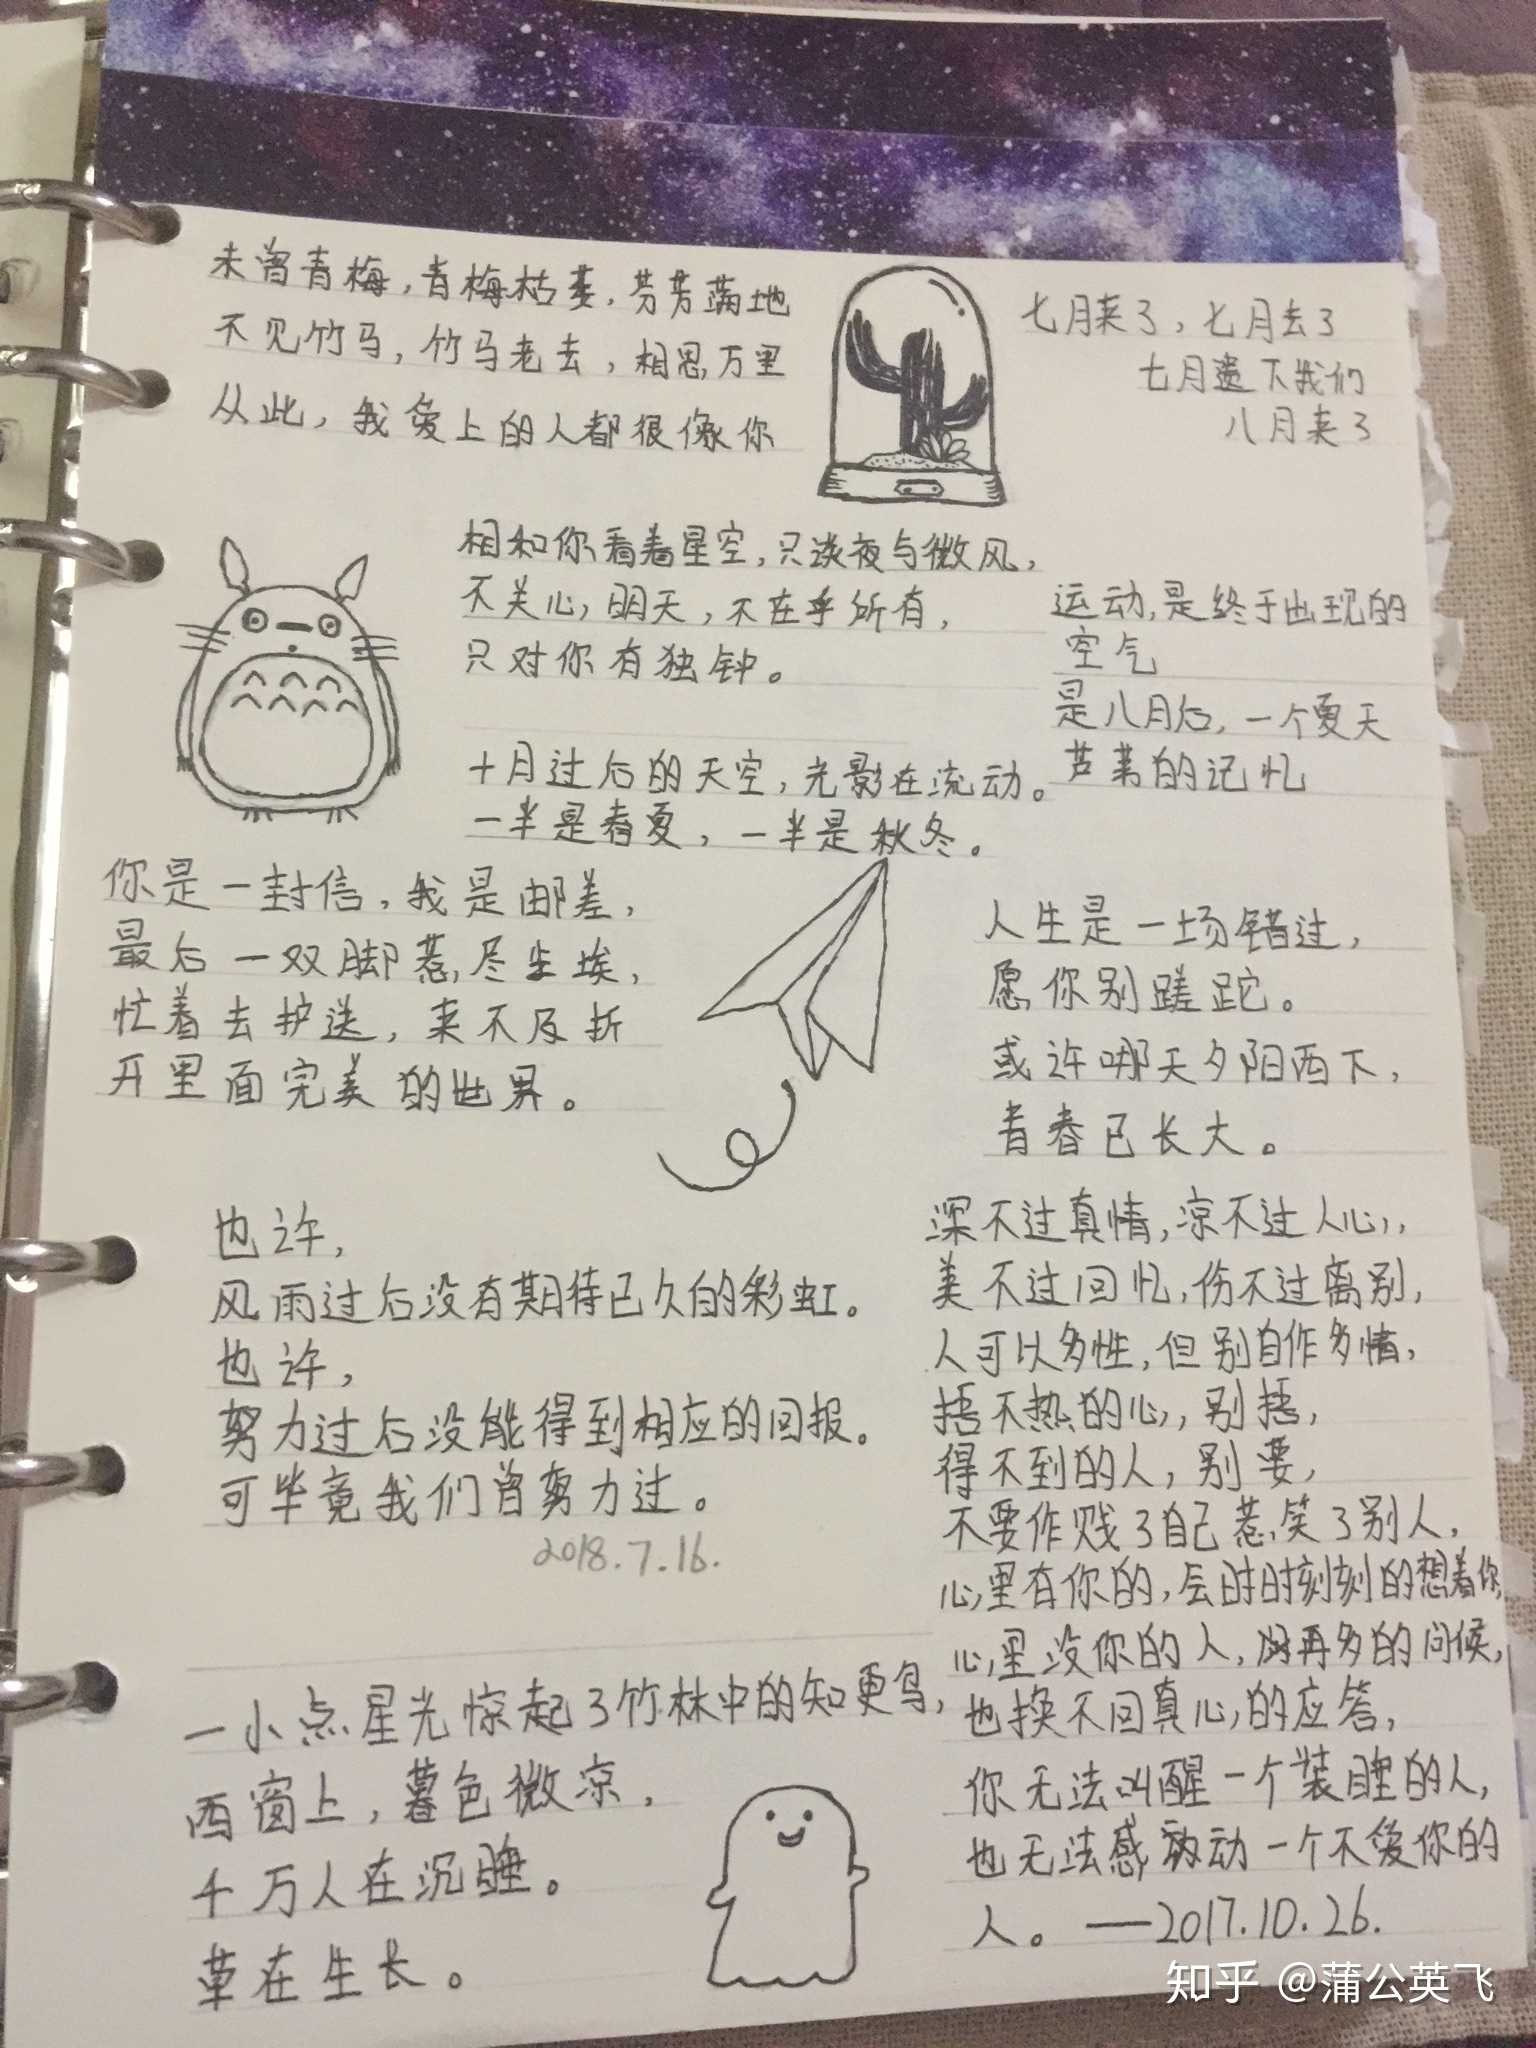 未曾青梅，青梅枯萎，芬芳满地
不见竹马，竹马老去，相思万里
从此，我爱上的人都很像你
七月来了，七月去了
七月遗下我们
八月来了
相和你看着星空，只谈夜与微风，
不关心，明天，不在乎所有，
只对你有独钟。
运动，是终于出现的
空气
是八月后，一个夏天
芦苇的记忆
十月过后的天空，光影在流动。
一半是春夏，一半是秋冬。
你是一封信，我是邮差，
最后一双脚惹尽尘埃，
忙着去护送，来不及折
开里面完美的世界。
人生是一场错过，
愿你别蹉跎。
或许哪天夕阳西下，
青春已长大。
也许，
风雨过后没有期待已久的彩虹。
也许，
努力过后没能得到相应的回报。
可毕竟我们曾努力过。
2018.7.16.
深不过真情，凉不过人心，
美不过回忆，伤不过离别，
人可以多性，但别自作多情，
捂不热的心，别捂，
得不到的人，别要，
不要作贱了自己惹笑了别人，
心里有你的，会时时刻刻的想着你，
心里没你的人，再多的问候，
也换不回真心的应答，
你无法叫醒一个装睡的人，
也无法感动一个不爱你的
人。——2017.10.26.
一小点星光惊起了竹林中的知更鸟，
西窗上，暮色微凉，
千万人在沉睡。
草在生长。
知乎 @蒲公英飞